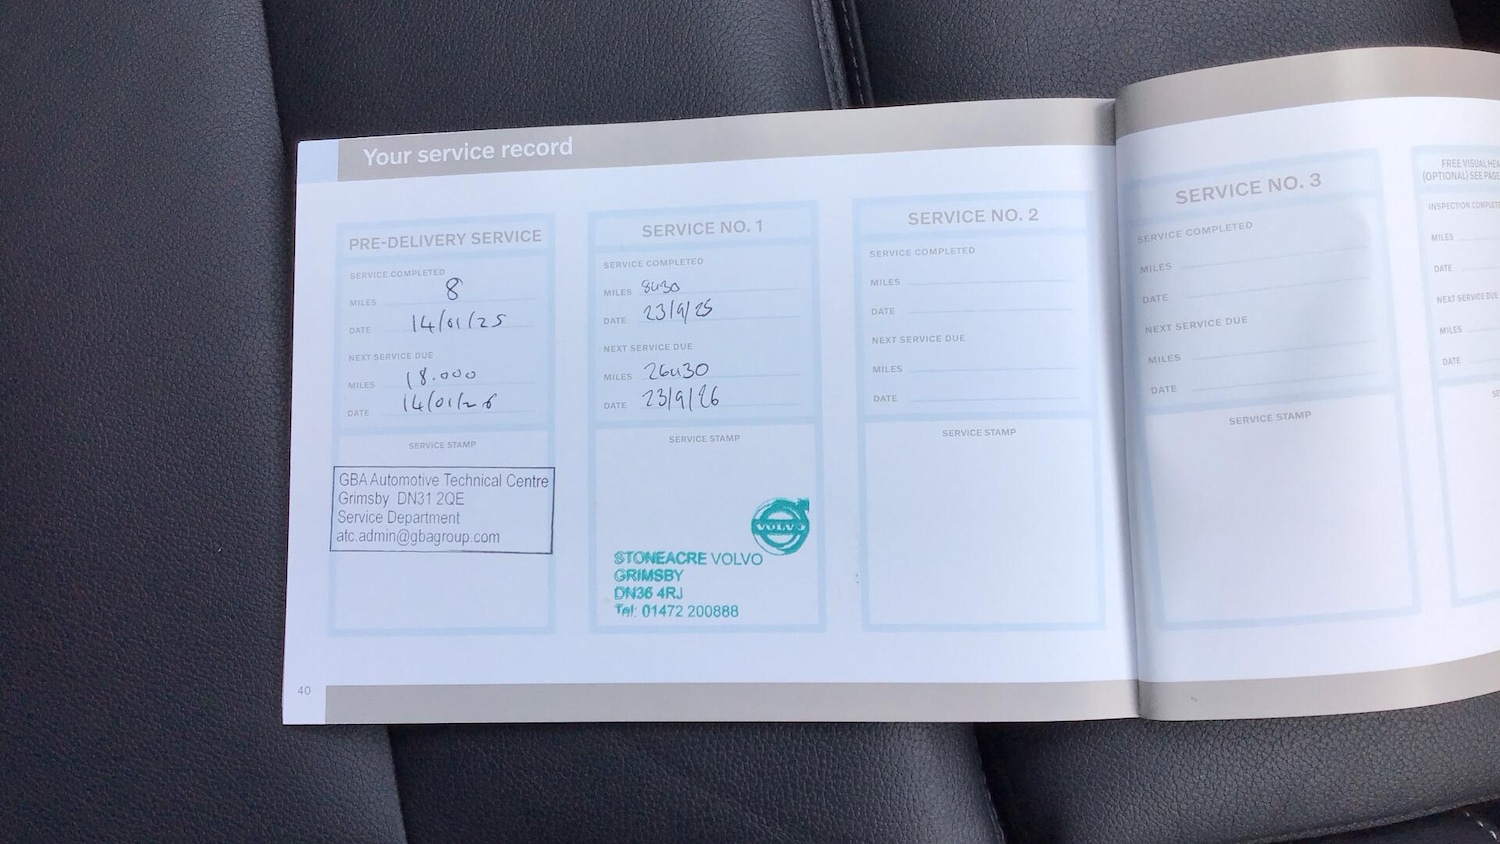 Your service record
PRE-DELIVERY SERVICE
SERVICE COMPLETED
MILES 8
DATE 14/01/25
NEXT SERVICE DUE
MILES 18.000
DATE 14/01/26
SERVICE STAMP
GBA Automotive Technical Centre
Grimsby DN31 2QE
Service Department
atc.admin@gbagroup.com
SERVICE NO. 1
SERVICE COMPLETED
MILES 8430
DATE 23/9/25
NEXT SERVICE DUE
MILES 26430
DATE 23/9/26
SERVICE STAMP
VOLVO
STONEACRE VOLVO
GRIMSBY
DN36 4RJ
Tel: 01472 200888
SERVICE NO. 2
SERVICE COMPLETED
MILES
DATE
NEXT SERVICE DUE
MILES
DATE
SERVICE STAMP
40
SERVICE NO. 3
SERVICE COMPLETED
MILES
DATE
NEXT SERVICE DUE
MILES
DATE
SERVICE STAMP
FREE VISUAL
(OPTIONAL) SEE
INSPECTION
MILES
DATE
NEXT SERVICE DUE
MILES
DATE